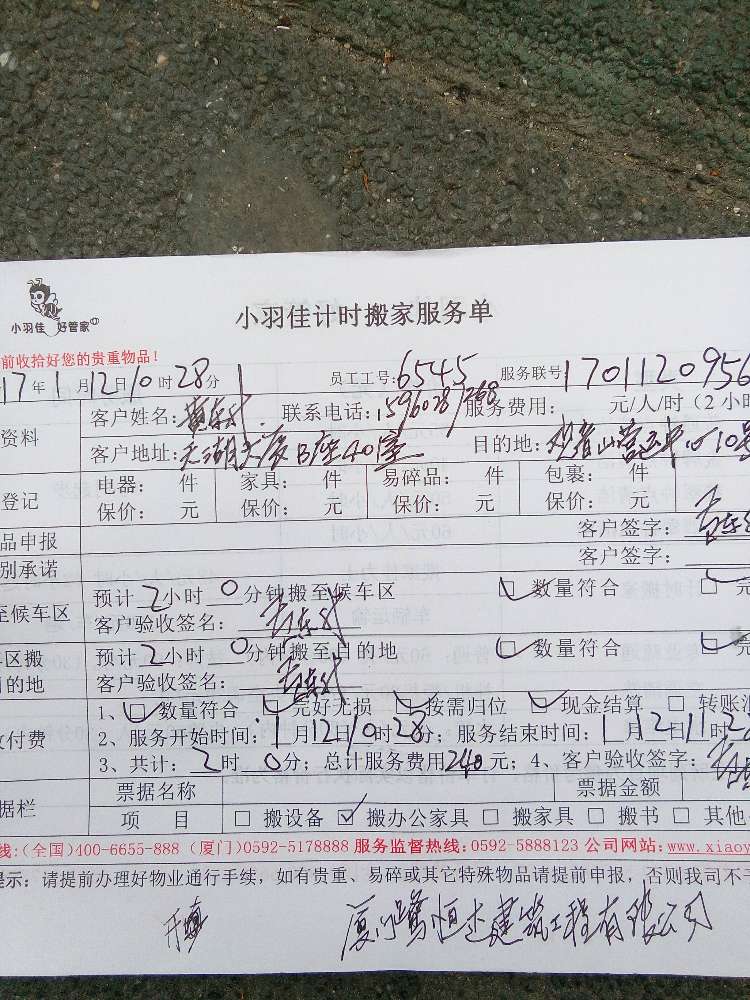 小羽佳 好管家
小羽佳计时搬家服务单
前收拾好您的贵重物品！
17年1月12日10时28分 员工工号：6545 服务联号：170112095
资料 客户姓名： 联系电话： 服务费用： 元/人/时（2小
客户地址：天湖大厦B座401室 目的地：观音山营运中心10号
登记 电器： 件 家具： 件 易碎品： 件 包裹： 件
保价： 元 保价： 元 保价： 元 保价： 元
品申报 客户签字：
别承诺 客户签字：
至候车区 预计2小时0分钟搬至候车区 数量符合 完
客户验收签名：
车区搬 预计2小时0分钟搬至目的地 数量符合 完
目的地 客户验收签名：
1、数量符合 完好无损 按需归位 现金结算 转账
付费 2、服务开始时间：1月12日10时28分；服务结束时间：1月12日11时2
3、共计：2时0分；总计服务费用240元；4、客户验收签字：
票据名称 票据金额
据栏 项 目 搬设备 搬办公家具 搬家具 搬书 其
线：(全国)400-6655-888 (厦门)0592-5178888 服务监督热线：0592-5888123 公司网站：www.xiaoy
提示：请提前办理好物业通行手续，如有贵重、易碎或其它特殊物品请提前申报，否则我司不
厦门鹭恒达建筑工程有限公司